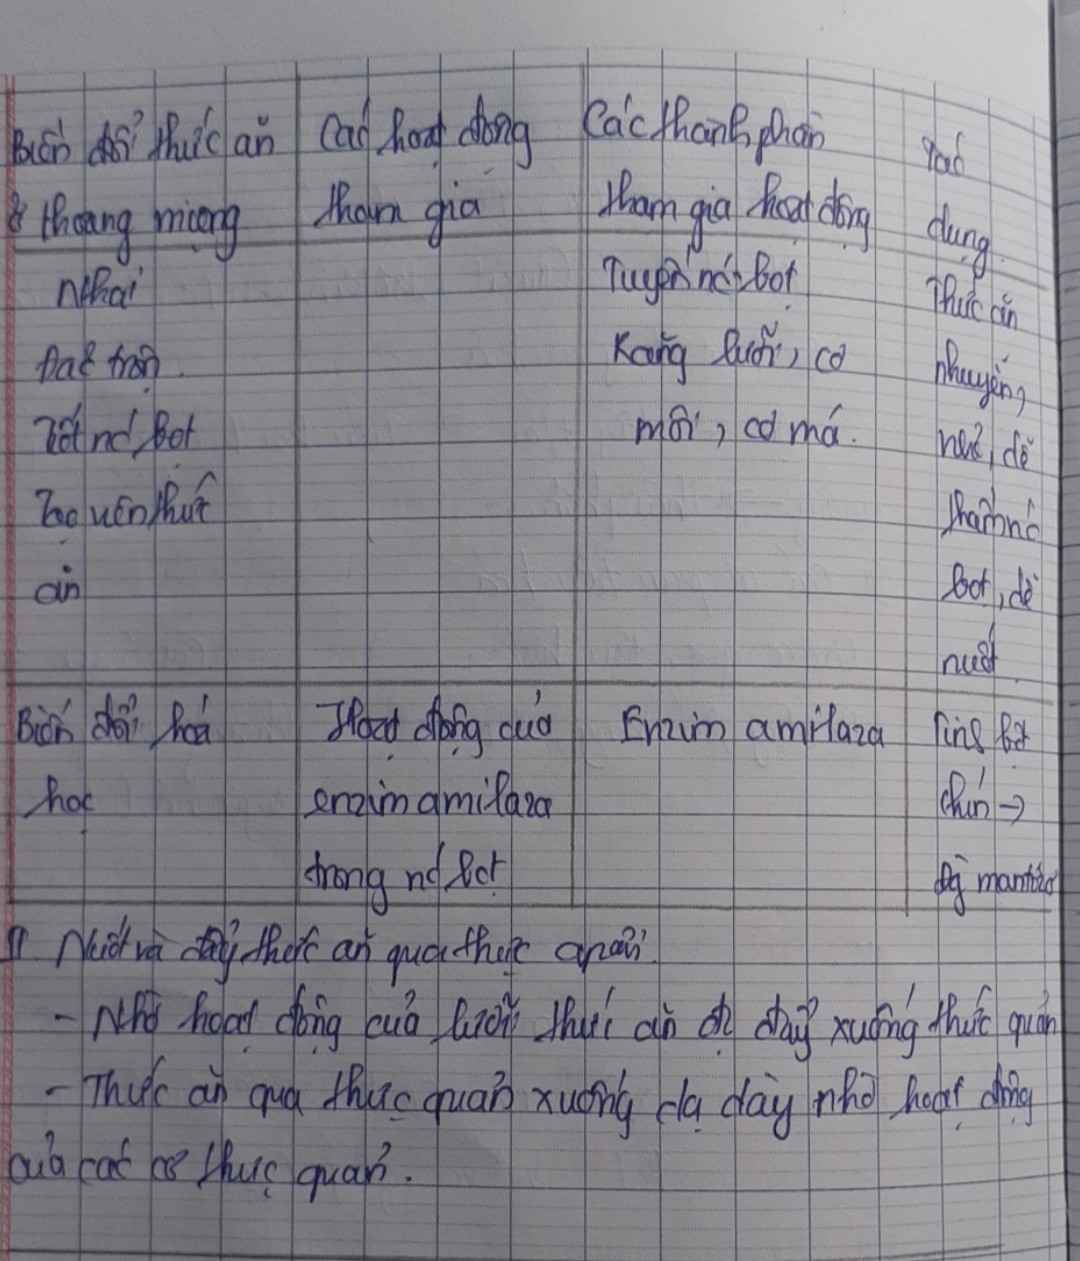 Biến đổi thức ăn Các hoạt động Các thành phần Tác
ở khoang miệng tham gia tham gia hoạt động dụng
Nhai Tuyến nước bọt Thức ăn
Đảo trộn Răng lưỡi, cơ nhuyễn,
Tiết nc bọt môi, cơ má. nát, dễ
Tạo viên thức thấm nc
ăn bọt, dễ
nuốt
Biến đổi hoá Hoạt động của Enzim amilaza Ting bột
học enzim amilaza chín →
trong nc bọt Đg mantôzơ
II Nuốt và đẩy thức ăn qua thực quản
- Nhờ hoạt động của lưỡi thức ăn đc đẩy xuống thực quản
- Thức ăn qua thực quản xuống dạ dày nhờ hoạt động
của các cơ thực quản.